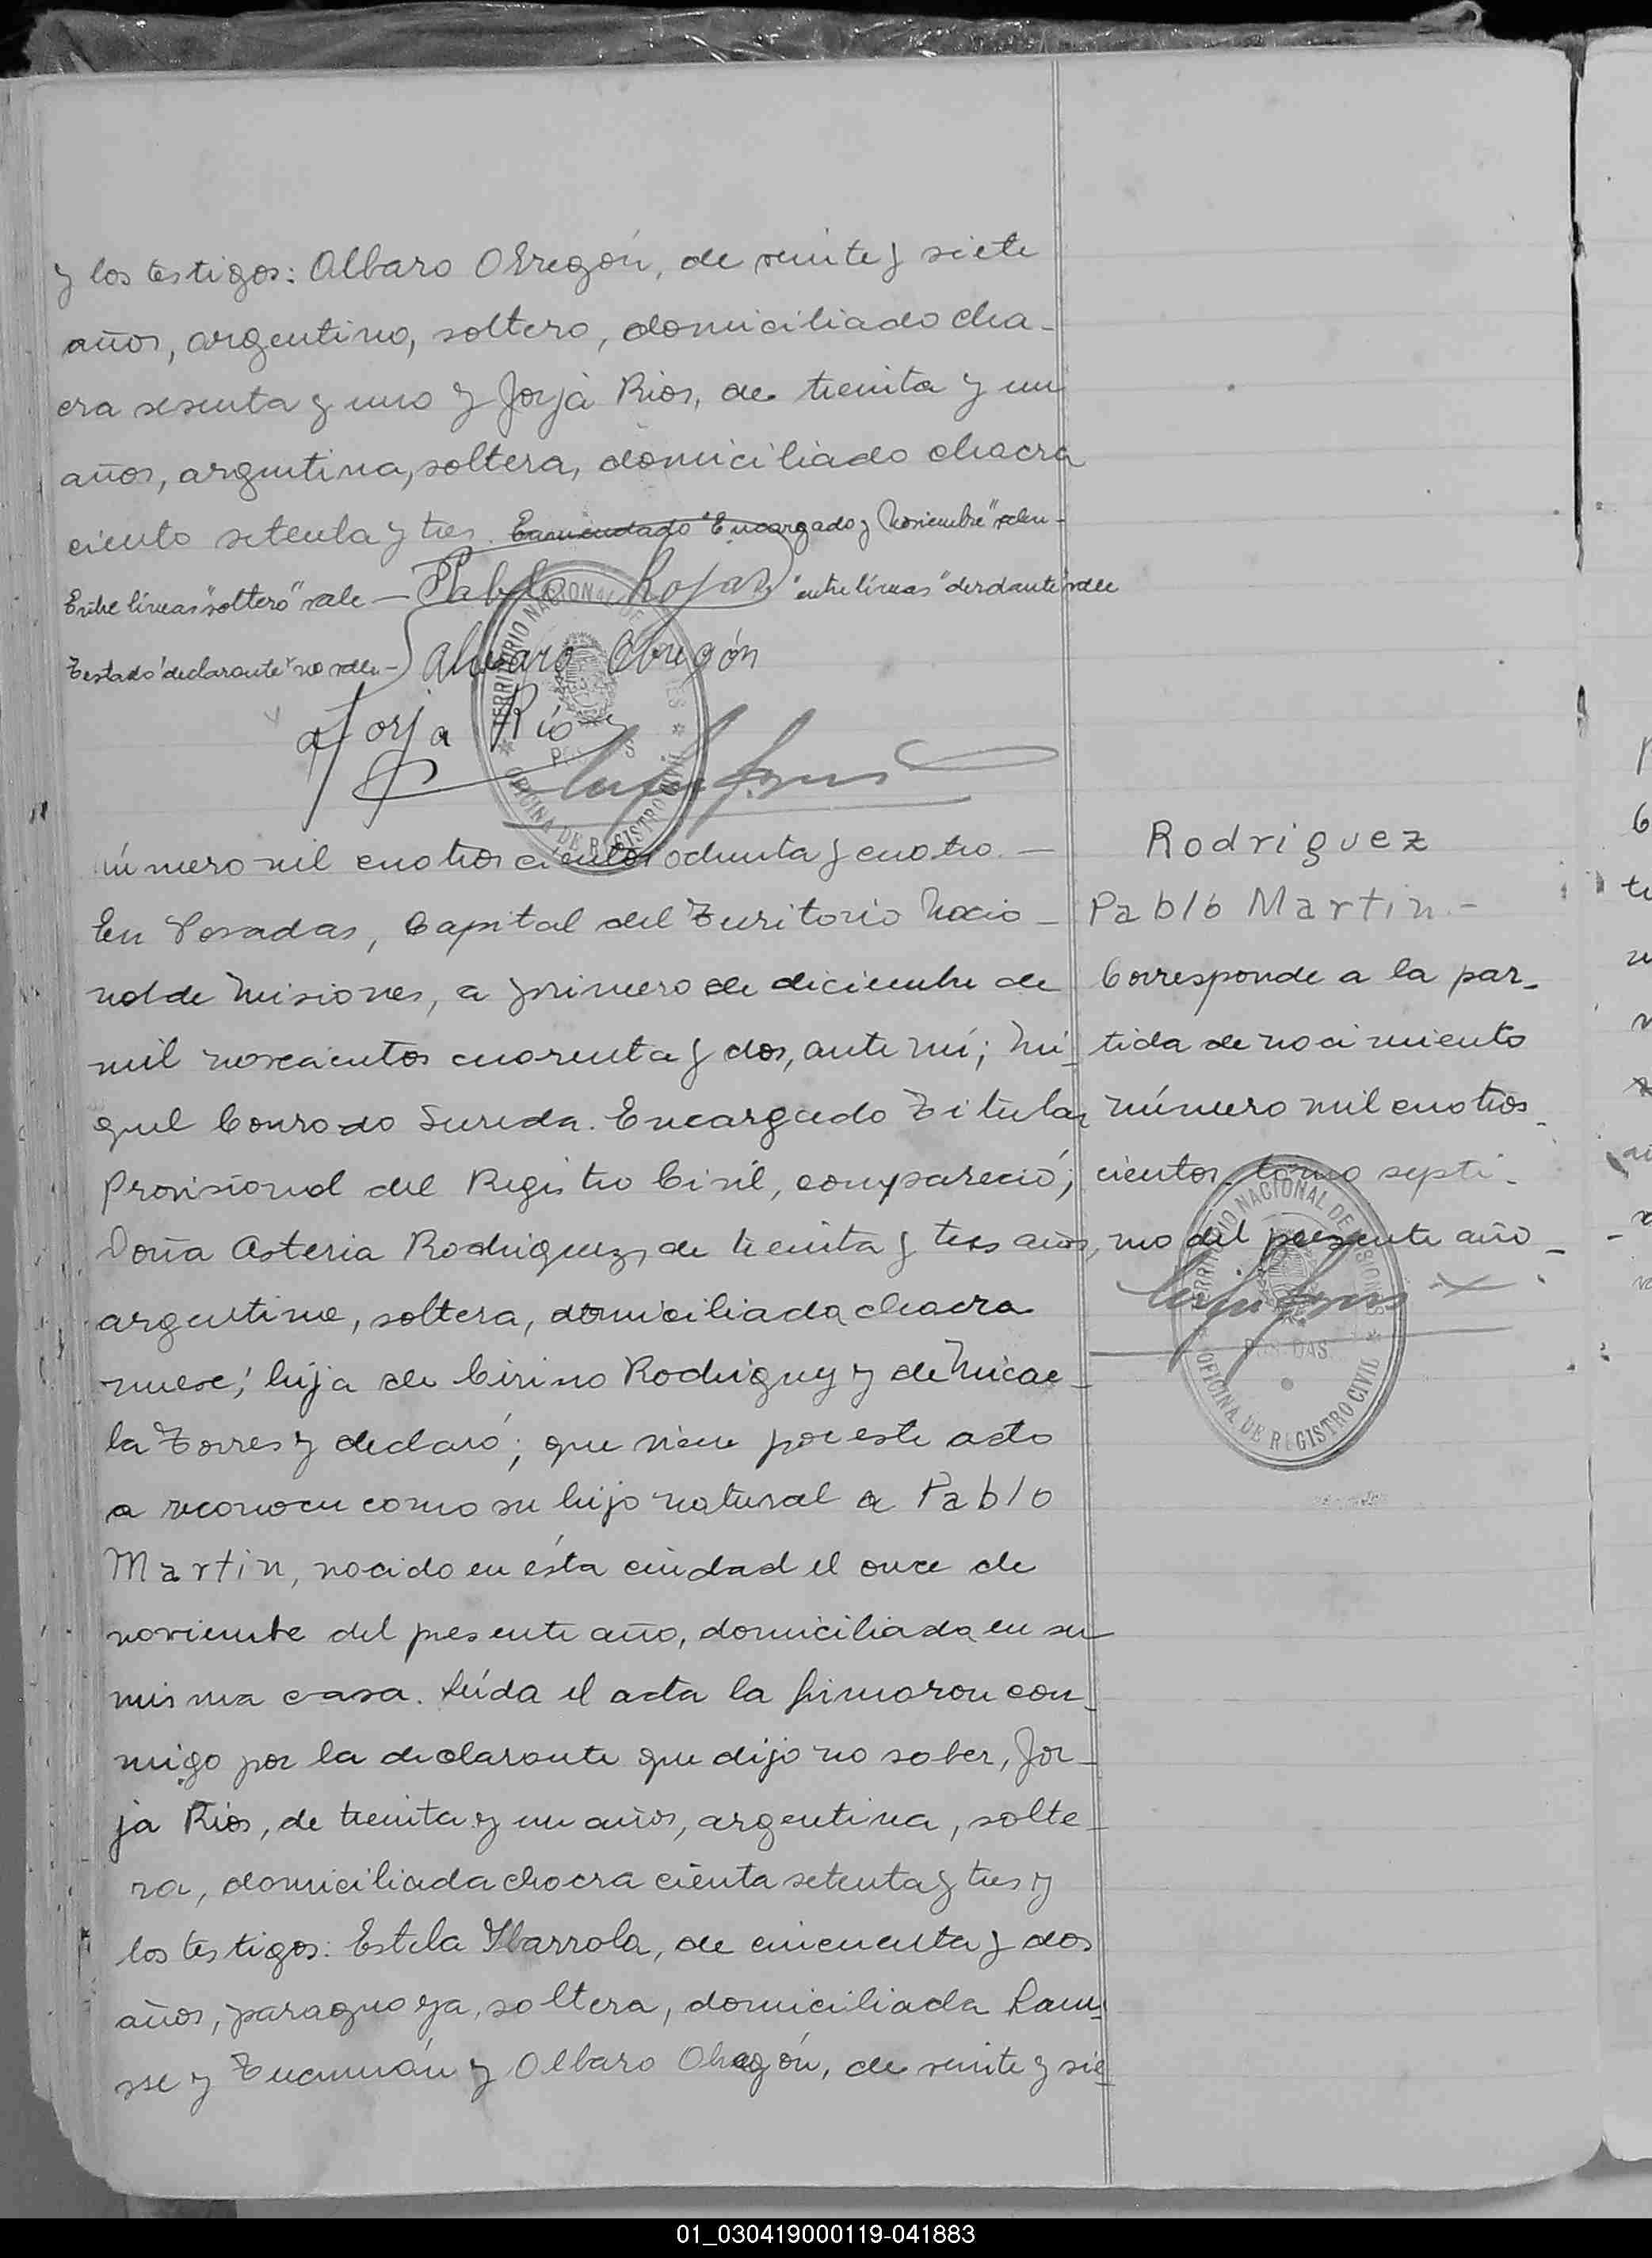 y los testigos: Albaro Obregón, de veinte y siete
años, argentino, soltero, domiciliado cha-
cra sesenta y uno y Jorja Rios, de treinta y un
años, argentina, soltera, domiciliado chacra
ciento setenta y tres. Enmendado "Encargado y Noviembre" valen-
Entre líneas "soltero" vale — Pablo Rojas "entre líneas"
Testado "declarante" no vale- Alvaro Obregón
a Jorja Ríos
TERRITORIO NACIONAL DE MISIONES
POSADAS
OFICINA DE REGISTRO CIVIL
Número mil cuatrocientos ochenta y cuatro.—
En Posadas, Capital del Territorio Nacio-
nal de Misiones, a primero de diciembre de
mil novecientos cuarenta y dos, ante mí; Mi-
guel Conrado Sureda. Encargado Titular
Provisional del Registro Civil, compareció;
Doña Asteria Rodriguez, de treinta y tres años,
argentina, soltera, domiciliada chacra
nueve; hija de Cirino Rodriguez y de Micae-
la Torres y declaró; que viene por este acto
a reconocer como su hijo natural a Pablo
Martin, nacido en ésta ciudad el once de
noviembre del presente año, domiciliada en su
misma casa. Leída el acta la firmaron con-
migo por la declarante que dijo no saber, Jor-
ja Rios, de treinta y un años, argentina, solte-
ra, domiciliada chacra ciento setenta y tres y
los testigos: Estela Ybarrola, de cincuenta y dos
años, paraguaya, soltera, domiciliada Lanu-
sse y Tucumán y Albaro Obregón, de veinte y sie-
Rodriguez
Pablo Martin.-
Corresponde a la par-
tida de nacimiento
número mil cuatros-
cientos tomo septi-
mo del presente año-
TERRITORIO NACIONAL DE MISIONES
POSADAS
OFICINA DE REGISTRO CIVIL
01_030419000119-041883